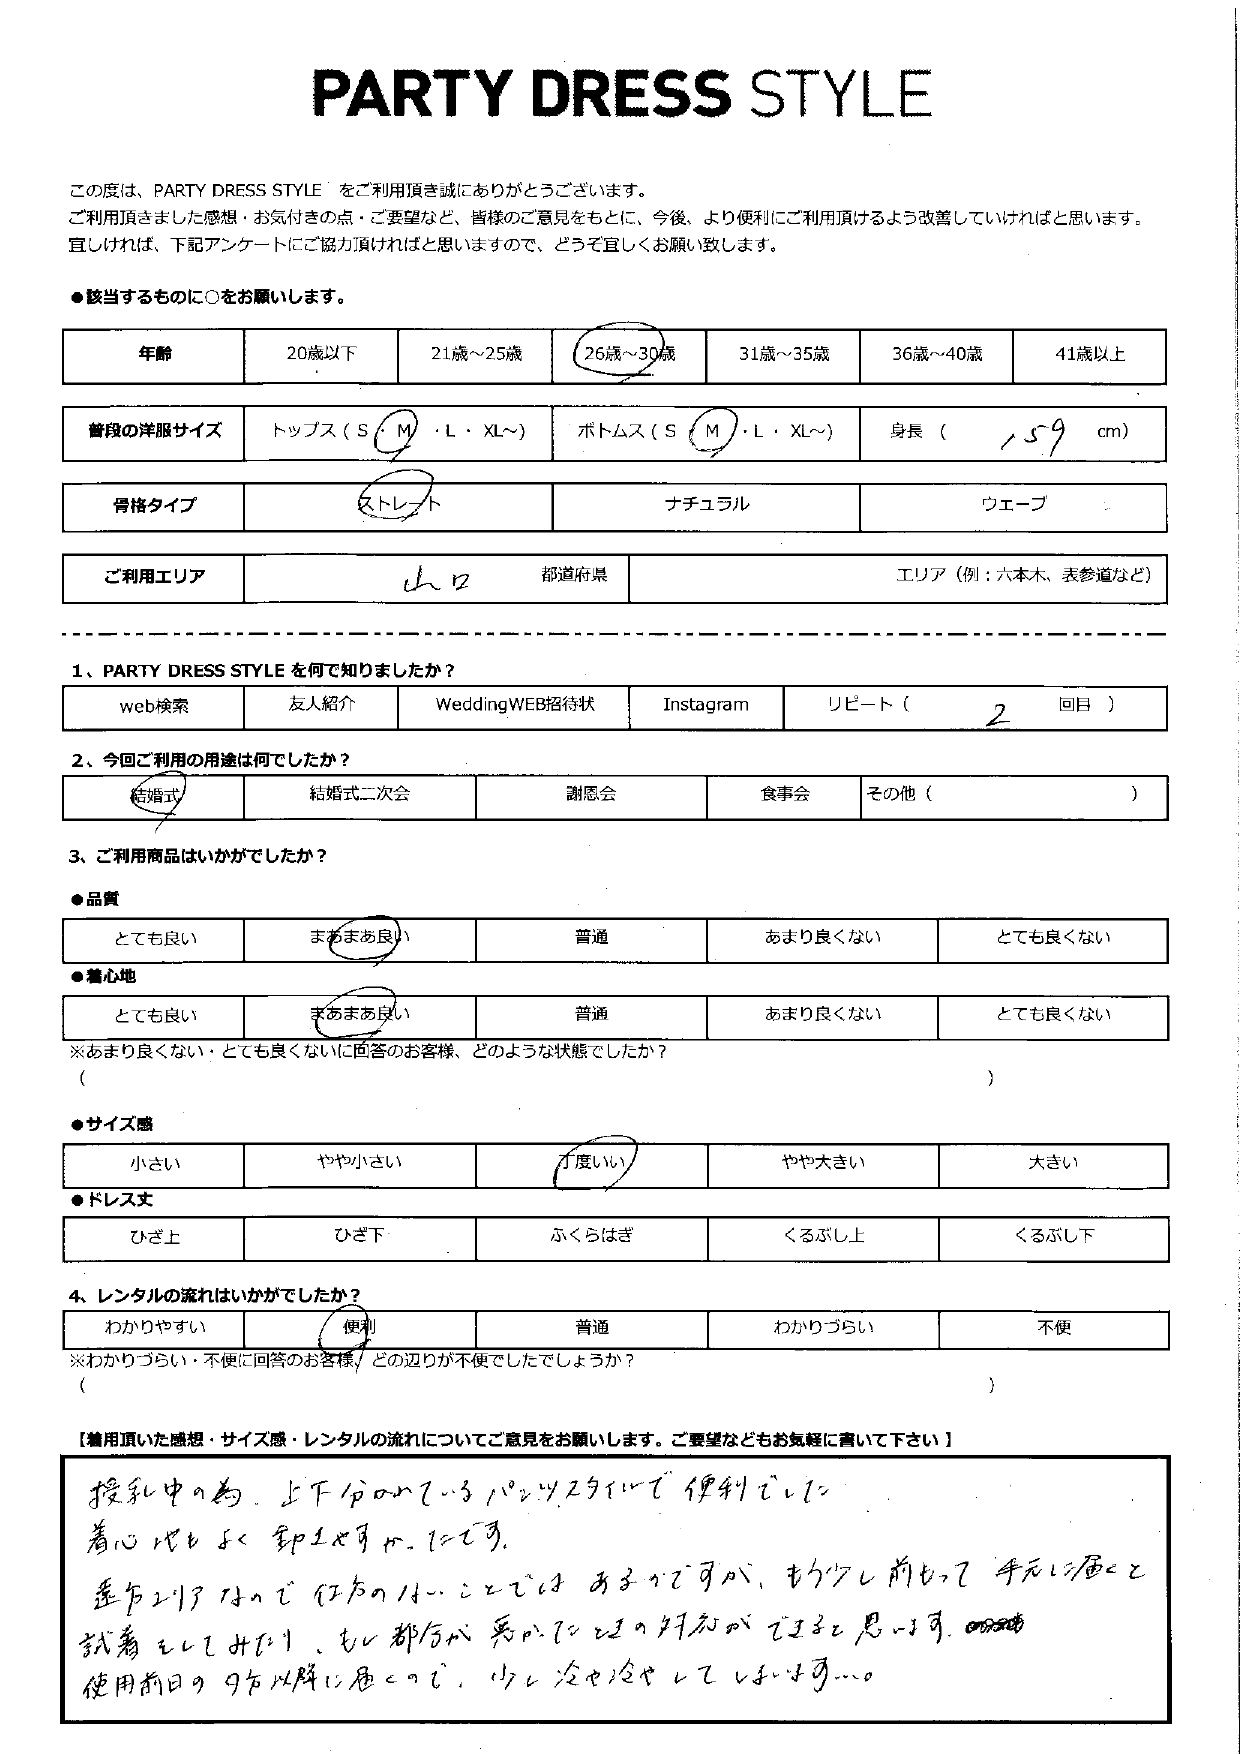 PARTY DRESS STYLE
この度は、PARTY DRESS STYLE をご利用頂き誠にありがとうございます。
ご利用頂きました感想・お気付きの点・ご要望など、皆様のご意見をもとに、今後、より便利にご利用頂けるよう改善していければと思います。
宜しければ、下記アンケートにご協力頂ければと思いますので、どうぞ宜しくお願い致します。
●該当するものに○をお願いします。
年齢 20歳以下 21歳～25歳 26歳～30歳 31歳～35歳 36歳～40歳 41歳以上
普段の洋服サイズ トップス ( S ・ M ・ L ・ XL～) ボトムス ( S ・ M ・ L ・ XL～) 身長 ( 159 cm)
骨格タイプ ストレート ナチュラル ウェーブ
ご利用エリア 山口 都道府県 エリア（例：六本木、表参道など）
1、PARTY DRESS STYLE を何で知りましたか？
web検索 友人紹介 WeddingWEB招待状 Instagram リピート ( 2 回目 )
2、今回ご利用の用途は何でしたか？
結婚式 結婚式二次会 謝恩会 食事会 その他 ( )
3、ご利用商品はいかがでしたか？
●品質
とても良い まあまあ良い 普通 あまり良くない とても良くない
●着心地
とても良い まあまあ良い 普通 あまり良くない とても良くない
※あまり良くない・とても良くないに回答のお客様、どのような状態でしたか？
( )
●サイズ感
小さい やや小さい 丁度いい やや大きい 大きい
●ドレス丈
ひざ上 ひざ下 ふくらはぎ くるぶし上 くるぶし下
4、レンタルの流れはいかがでしたか？
わかりやすい 便利 普通 わかりづらい 不便
※わかりづらい・不便に回答のお客様、どの辺りが不便でしたでしょうか？
( )
【着用頂いた感想・サイズ感・レンタルの流れについてご意見をお願いします。ご要望などもお気軽に書いて下さい】
授乳中の為、上下分かれているパンツスタイルで便利でした
着心地もよく動きやすかったです。
遠方エリアなので仕方のないことではあるのですが、もう少し前もって手元に届くと
試着をしてみたり、もし都合が悪かったときの対応ができると思います。
使用前日の夕方以降に届くので、少し冷や冷やしてしまいます…。